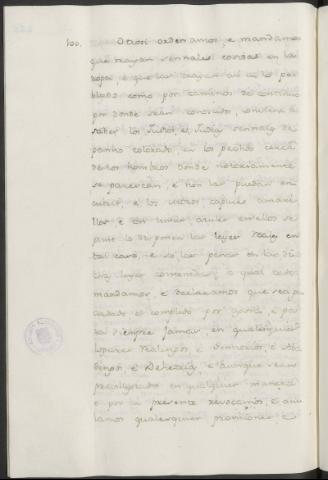 100. Otrosi ordenamos, e mandamos
que trayan sennales cosidas en las
ropas, e que las trayan asi en lo po-
blado como por caminos de continuo
por donde sean conocidos, conviene a
saber los Judios, e Judias sennales de
panno colorado, en los pechos cerca
de los hombros donde notoriamente
se parezcan, e non las puedan en-
cubrir, e los Moros, capuces amari-
llos e con lunas azules en ellos se-
gunt lo disponen las leyes Reales en
tal caso, e so las penas en las di-
chas leyes contenidas, lo qual todo
mandamos, e declaramos que sea gu-
ardado e complido por agora, e pa-
ra siempre jamas en qualesquier
logares realengos, e sennorios, e Aba-
dengos, e Behetrias, e aunque sean
previllegiados en qualquier manera
e por la presente revocamos, e anu-
lamos qualesquier provisiones e